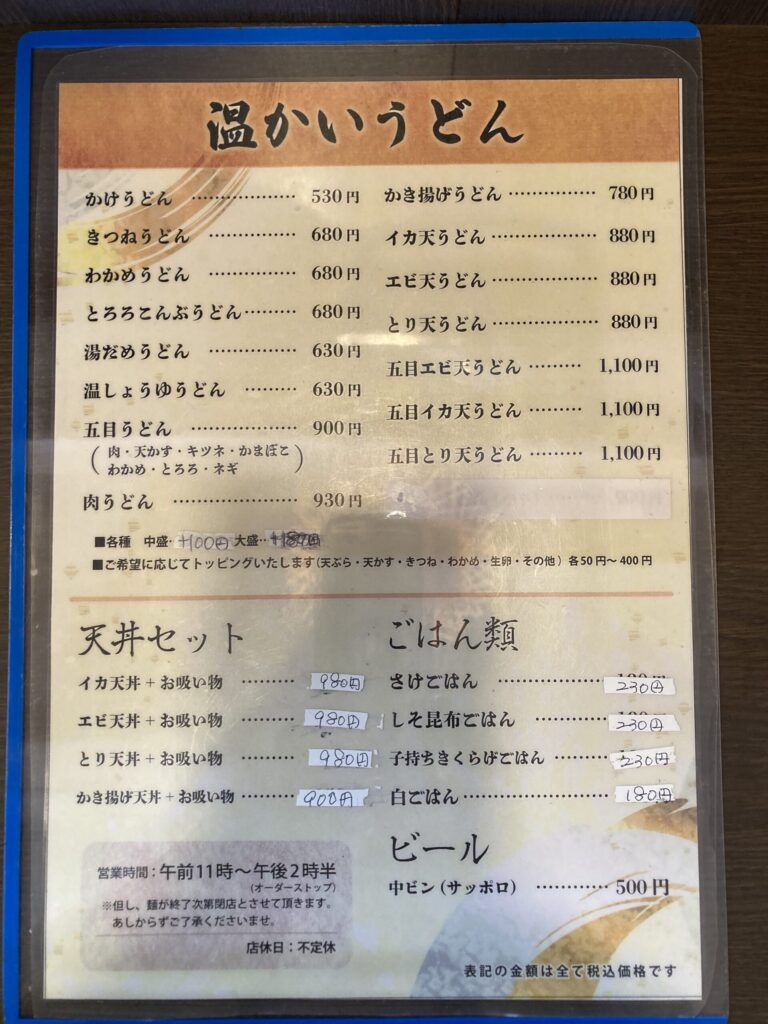 温かいうどん
かけうどん ……………… 530円
きつねうどん ………… 680円
わかめうどん ………… 680円
とろろこんぶうどん……… 680円
湯だめうどん ………… 630円
温しょうゆうどん ……… 630円
五目うどん …………… 900円
(肉・天かす・キツネ・かまぼこ
わかめ・とろろ・ネギ)
肉うどん ……………… 930円
かき揚げうどん …………… 780円
イカ天うどん ……………… 880円
エビ天うどん ……………… 880円
とり天うどん ……………… 880円
五目エビ天うどん ……… 1,100円
五目イカ天うどん ……… 1,100円
五目とり天うどん ……… 1,100円
■各種 中盛‥+100円 大盛‥
■ご希望に応じてトッピングいたします(天ぷら・天かす・きつね・わかめ・生卵・その他) 各50円〜400円
天丼セット
イカ天丼+お吸い物 ……… 980円
エビ天丼+お吸い物 ……… 980円
とり天丼+お吸い物 ……… 980円
かき揚げ天丼+お吸い物 ……… 900円
ごはん類
さけごはん ……………… 230円
しそ昆布ごはん ………… 230円
子持ちきくらげごはん ……… 230円
白ごはん…………………… 180円
ビール
中ビン(サッポロ) ………… 500円
営業時間:午前11時〜午後2時半
(オーダーストップ)
※但し、麺が終了次第閉店とさせて頂きます。
あしからずご了承くださいませ。
店休日:不定休
表記の金額は全て税込価格です